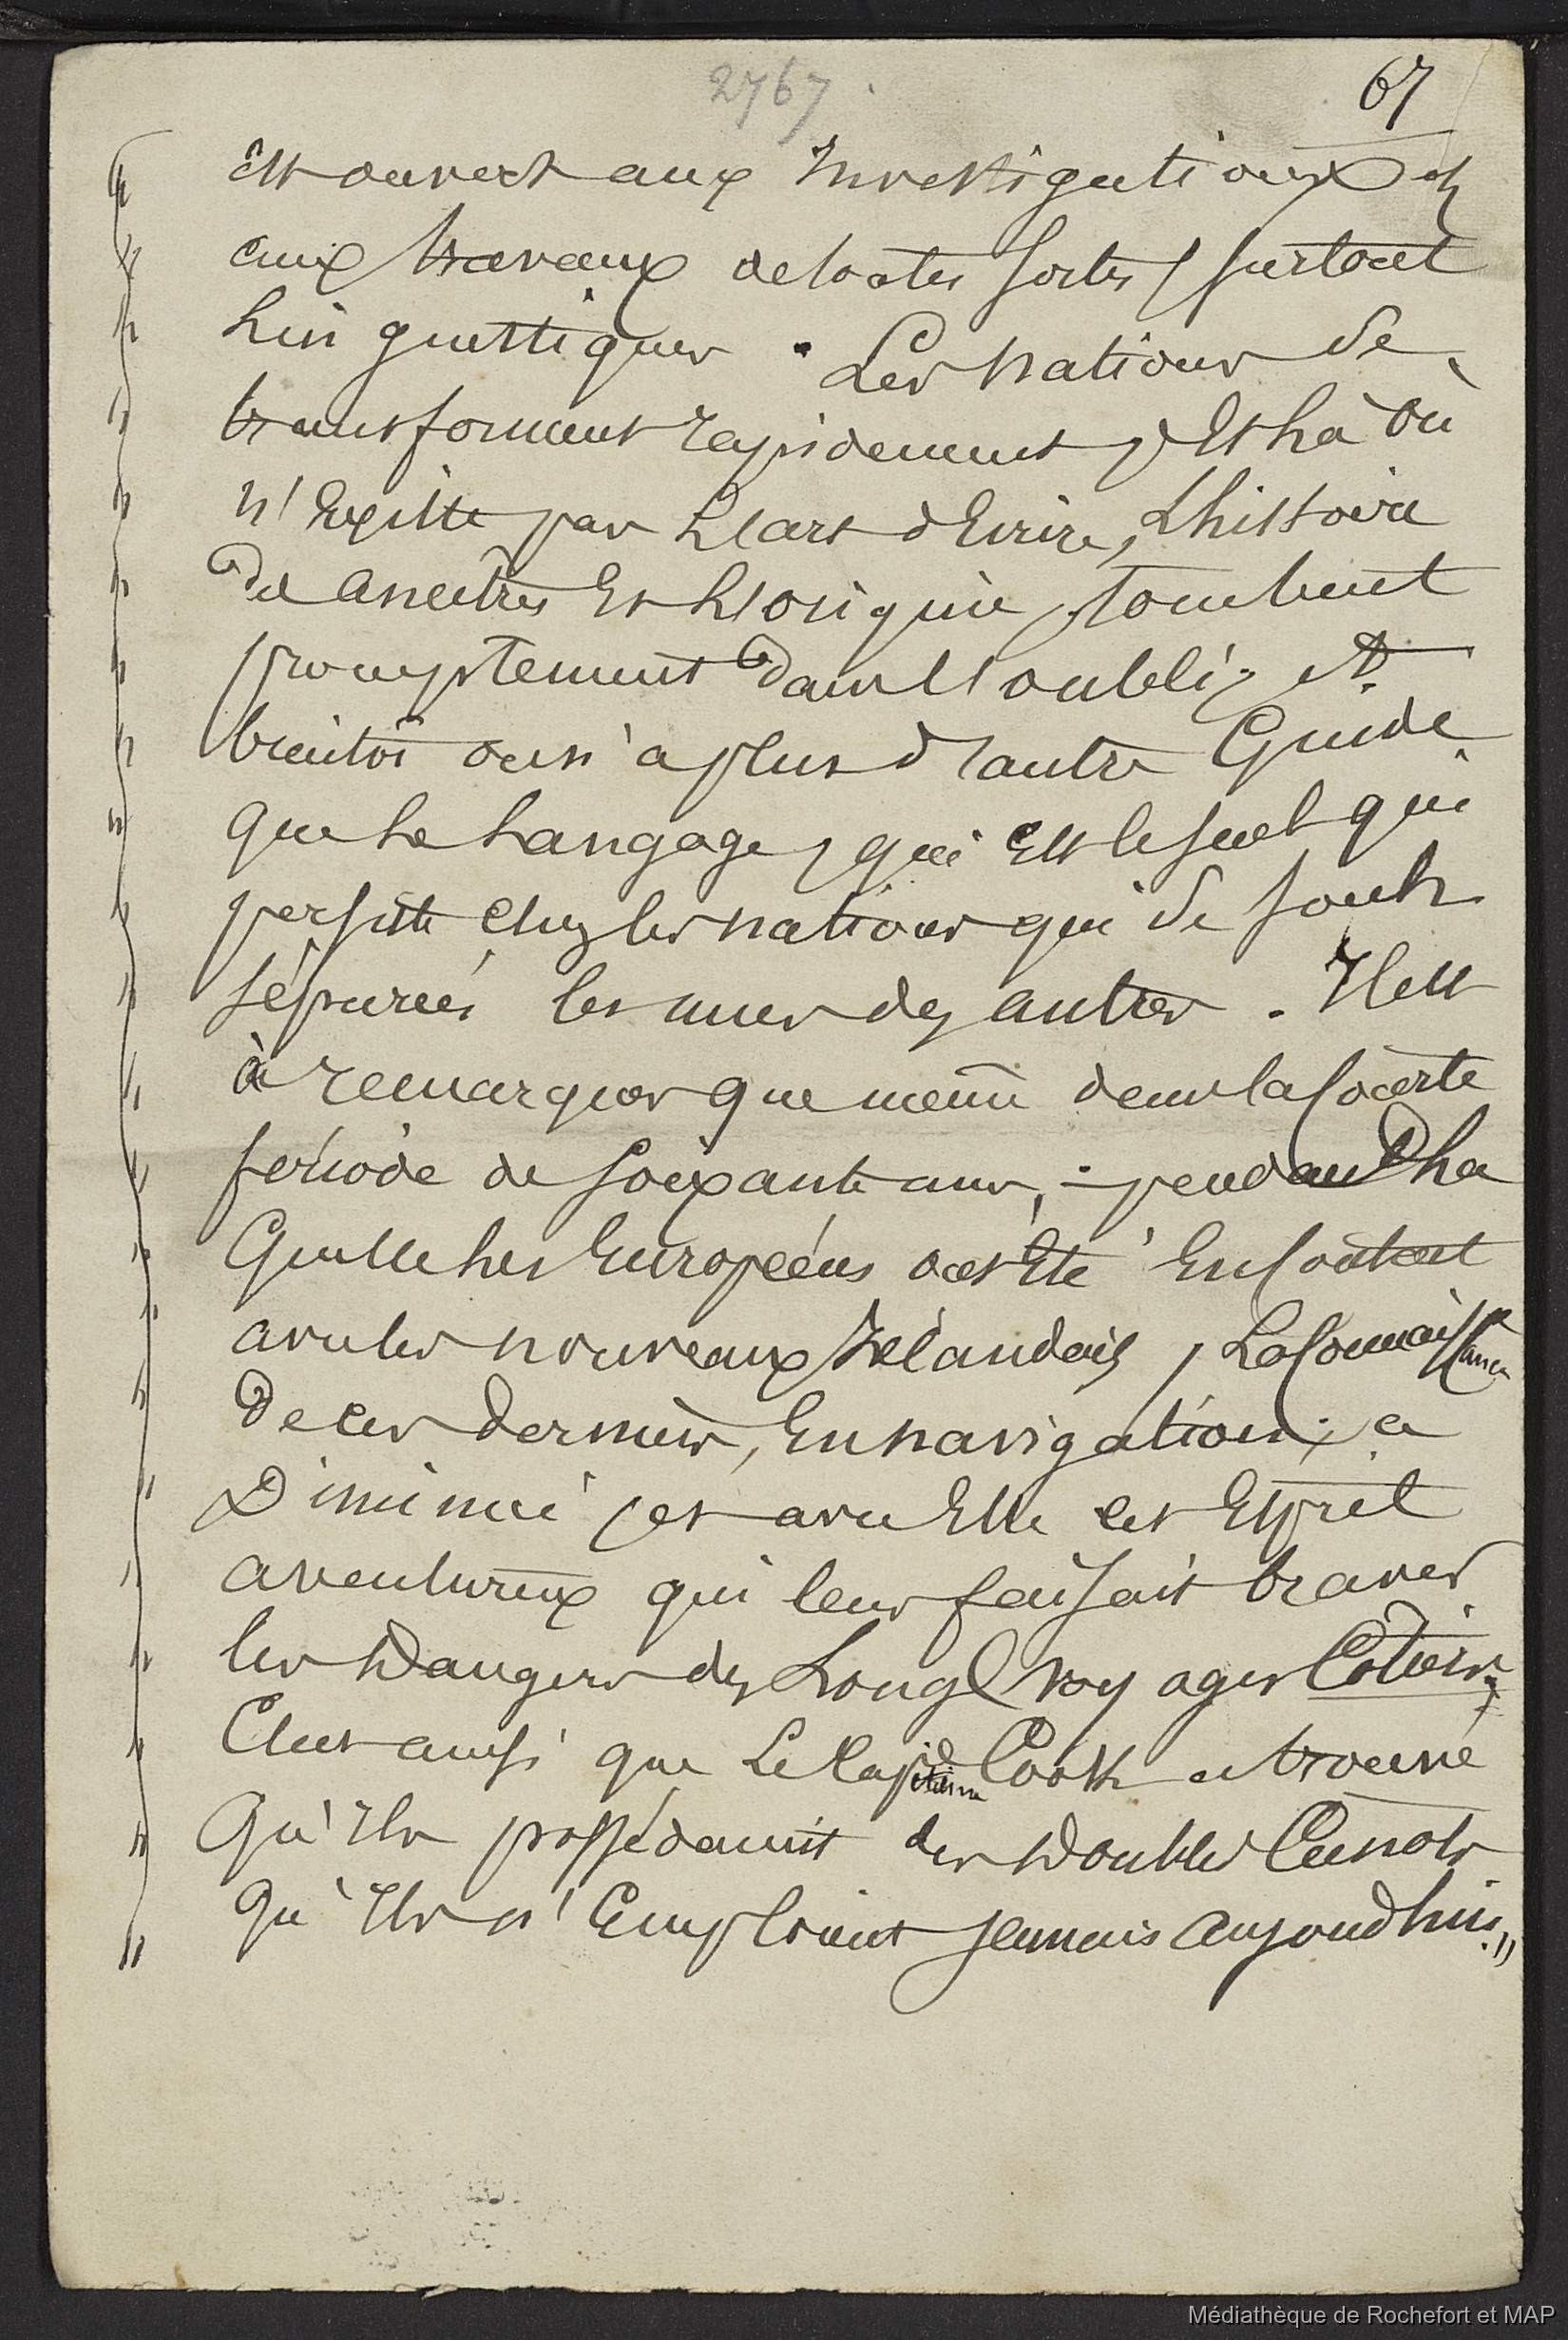 2767.
67
Est ouvert aux Investigations et
aux travaux de toutes sortes, surtout
Linguistiques. Les nations se
transforment rapidement, Et Là où
n'Existe pas L'art d'Ecrire, L'histoire
des ancêtres Et L'origine, tombent
promptement dans l'oubli, et
bientôt on n'a plus d'autre Guide
que Le Langage, qui Est le seul qui
persiste chez les nations qui se sont
séparées les unes des autres. Il est
à remarquer que même dans la Courte
période de soixante ans, pendant La
Quelle Les Européens ont Eté En Contact
avec les nouveaux Zélandais, La Connaissance
de ces derniers, En navigation, a
Diminué, et avec Elle cet Esprit
aventureux qui leur faisait braver
les Dangers des Longs voyages Cotiers.
C'est ainsi que Le Capitaine Cook a trouvé
Qu'Ils possédaient des Doubles Canots
Qu'Ils n'Emploient jamais aujourd'hui."
Médiathèque de Rochefort et MAP